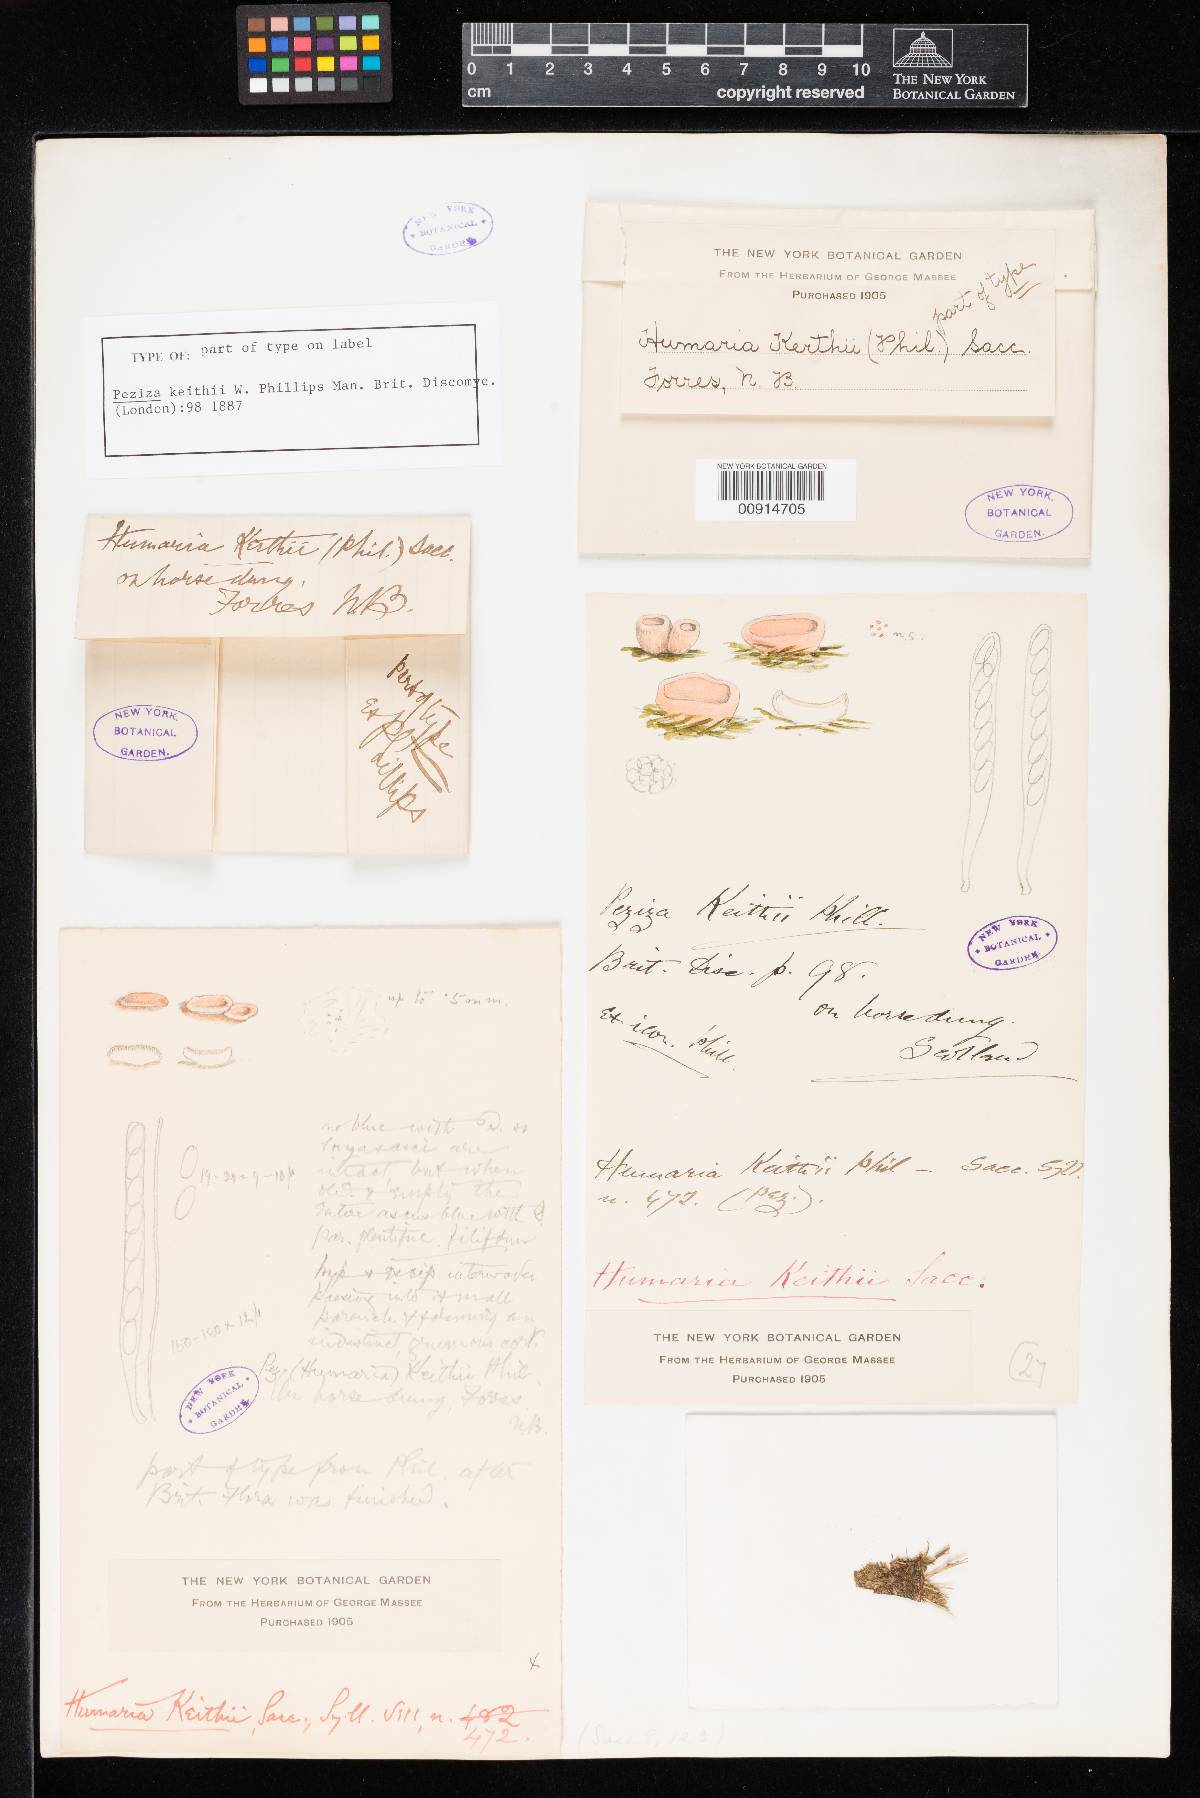 0 1 2 3 4 5 6 7 8 9 10
cm
copyright reserved
THE NEW YORK
BOTANICAL GARDEN
NEW YORK
BOTANICAL
GARDEN
TYPE OF: part of type on label
Peziza keithii W. Phillips Man. Brit. Discomyc.
(London):98 1887
THE NEW YORK BOTANICAL GARDEN
FROM THE HERBARIUM OF GEORGE MASSEE
PURCHASED 1905
part of type
Humaria Kerthii (Phil.) Sacc.
Forres, N. B.
NEW YORK BOTANICAL GARDEN
00914705
NEW YORK.
BOTANICAL
GARDEN.
Humaria Keithii (Phil.) Sacc.
on horse dung.
Forres N.B.
NEW YORK.
BOTANICAL
GARDEN.
part of type
Ex Phillips
n.s.
Peziza Keithii Phill.
Brit. Disc. p. 98.
on horse dung.
Scotland
Ex icon. Phill.
NEW YORK
BOTANICAL
GARDEN
Humaria Keithii Phil — Sacc. Syll.
n. 472. (Pez.).
Humaria Keithii Sacc.
THE NEW YORK BOTANICAL GARDEN
FROM THE HERBARIUM OF GEORGE MASSEE
PURCHASED 1905
27
up to .5 mm.
no blue with
asci are
intact, but when
old & empty the
entire ascus blue with
par. filiform
Hyp. interwoven
passing into small
parench. & forming an
indistinct
Pez (Humaria) Keithii Phil.
On horse dung, Forres
N.B.
150-160 x 12 µ
NEW YORK
BOTANICAL
GARDEN
part of type from Phil. after
Brit. Flora was finished.
THE NEW YORK BOTANICAL GARDEN
FROM THE HERBARIUM OF GEORGE MASSEE
PURCHASED 1905
x
Humaria Keithii, Sacc., Syll. VIII, n. 482
472.